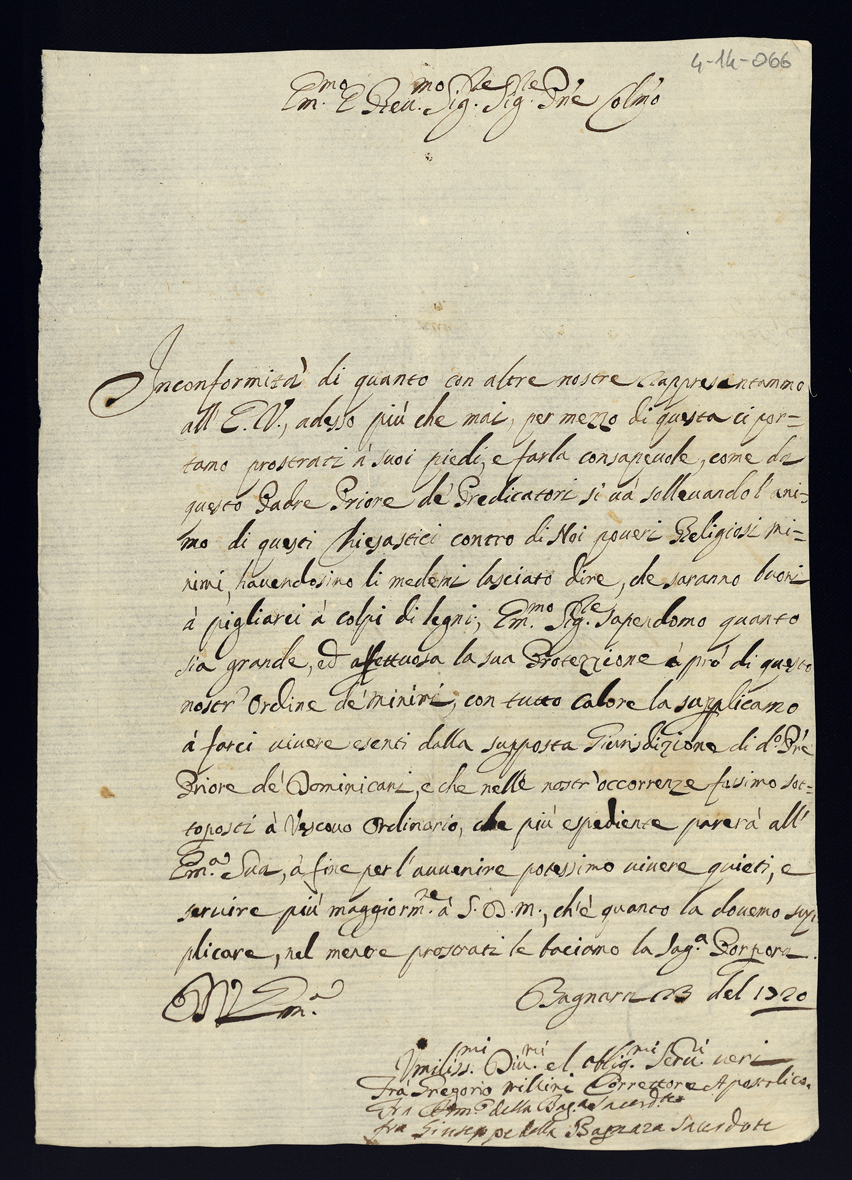 4-14-066
Em.mo E Reu.mo Sig.re Sig.re Pne Colmo
Inconformità di quanto con altre nostre rappresentammo
all' E. V., adesso più che mai, per mezzo di questa ci por=
tamo prostrati à suoi piedi, e farla consapeuole, come da
questo Padre Priore de' Predicatori si và solleuando l'ani=
mo di questi Chiesastici contro di Noi poueri Religiosi Mi=
nimi, hauendosino li medemi lasciato dire, che saranno buoni
à pigliarci à colpi di legni; Em.mo Sig.re sapendomo quanto
sia grande, ed affettuosa la sua Protezzione à prò di questo
nostr' Ordine de' Minimi, con tutto calore la supplicamo
à farci viuere esenti dalla supposta Giurisdizione di d.o Pre
Priore de' Dominicani, e che nelle nostr' occorrenze fusimo sot=
toposti à Vescouo Ordinario, che più espediente parerà all'
Em.a Sua, à fine per l'auuenire potessimo viuere quieti, e
seruire più maggiorm.te à S. D. M., ch'è quanto la douemo sup
plicare, nel mentre prostrati le baciamo la Sag.a Porpora.
Em.a
Bagnara 23 del 1720
Vmiliss.mi Diu.mi ed oblig.mi Seru.i ueri
Fra Gregorio Correttore Apostolico
Fra della Bag.a Sacerdote
fra Giuseppe della Bagnara Sacerdote